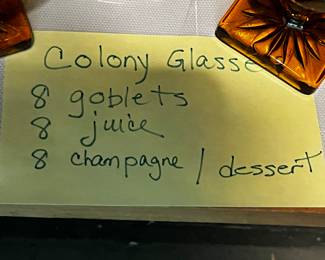 Colony Glasse
8 goblets
8 juice
8 champagne / dessert